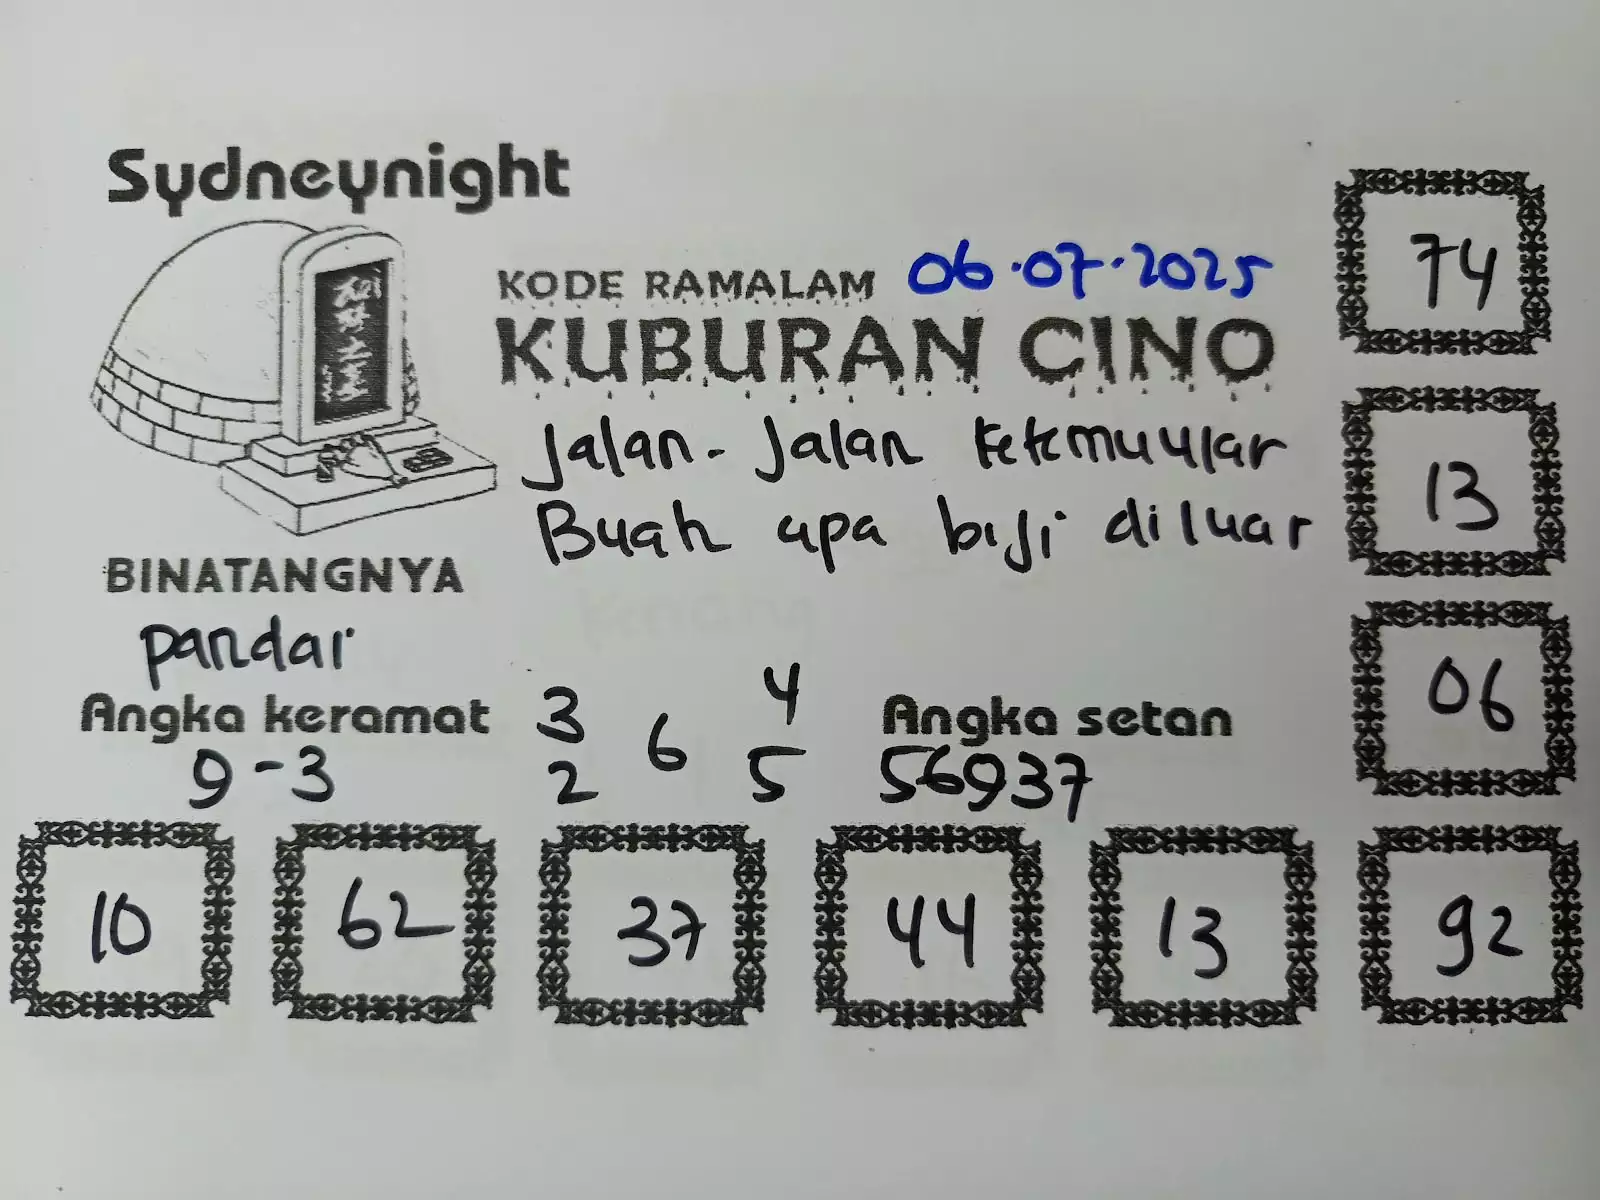 Sydneynight
KODE RAMALAM 06.07.2025
KUBURAN CINO
Jalan-Jalan ketemu ular
Buah apa biji diluar
BINATANGNYA
pandai
Angka keramat
9-3
3 4
6
2 5
Angka setan
56937
74
13
06
10 62 37 44 13 92